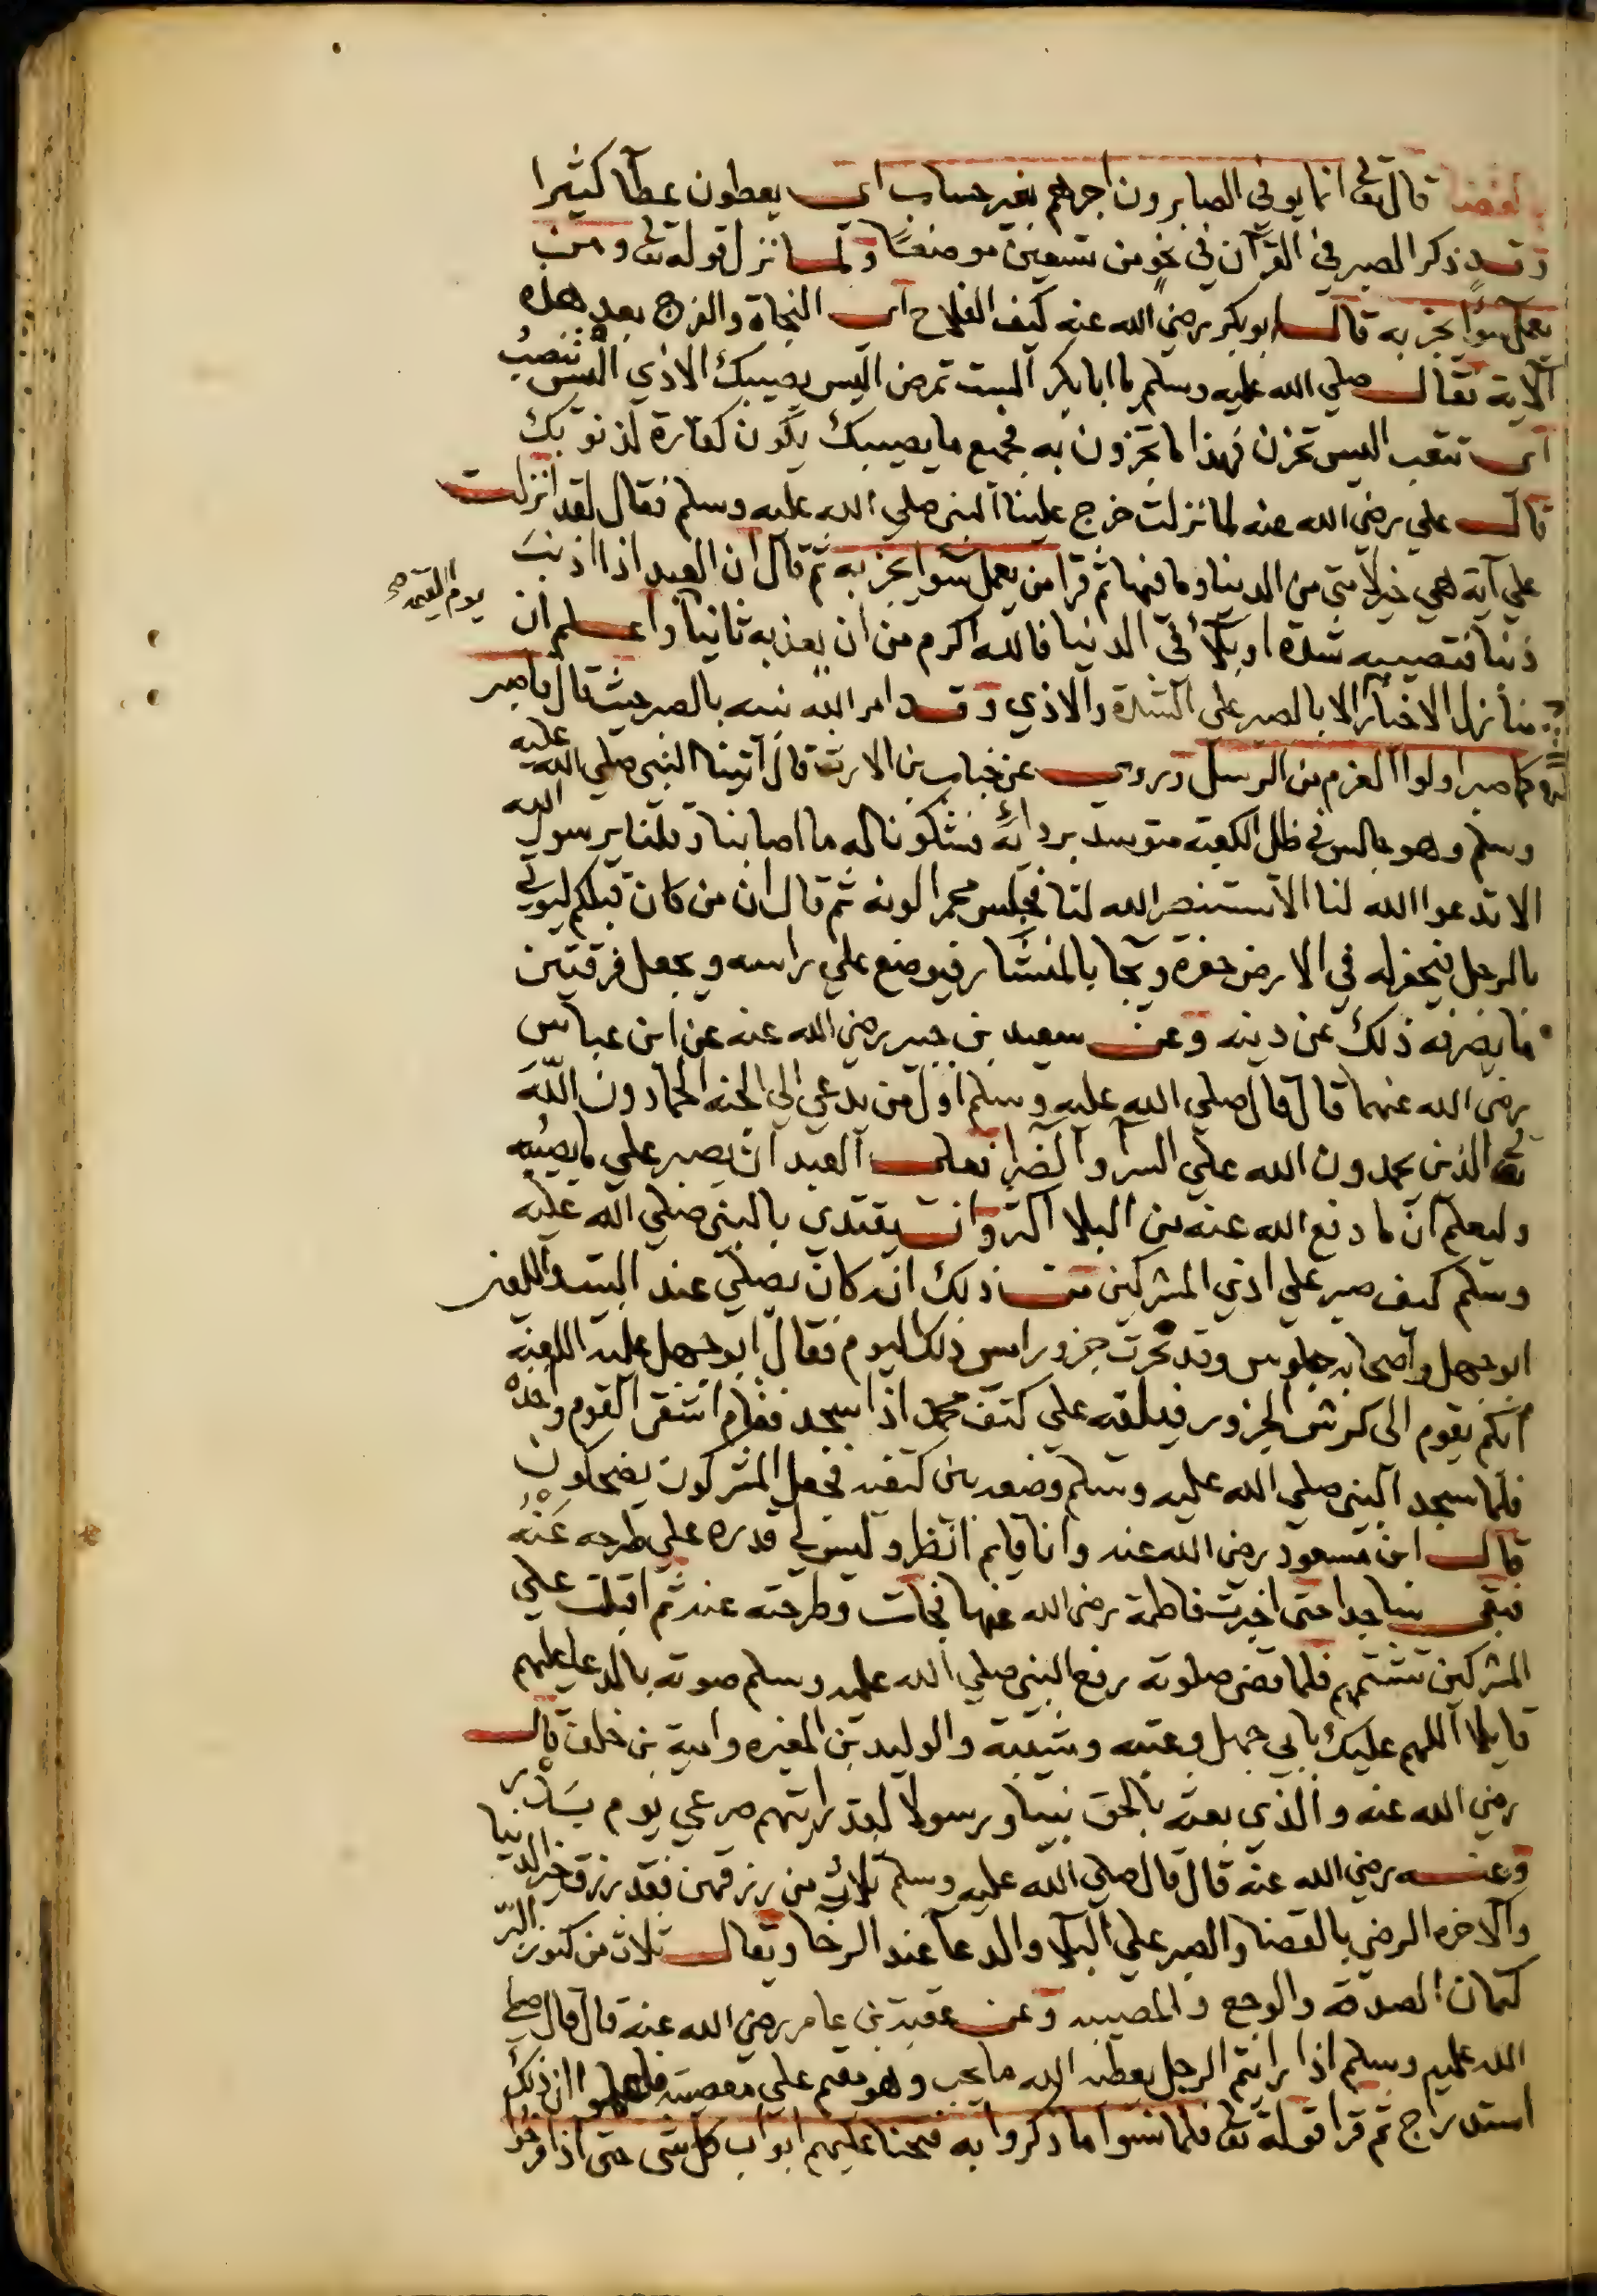 بالقضا قال تعا انما يوفى الصابرون اجرهم بغير حساب اي يعطون عطآ كثيرا
وقد ذكر الصبر في القرآن في نحو من تسعين موضعًا ولما نزل قوله تعا ومن
يعمل سوًا يجز به قال ابو بكر رضي الله عنه كيف الفلاح اي النجاة والفرج بعد هذه
الآية فقال صلي الله عليه وسلم يا ابا بكر الست تمرض اليس يصيبك الاذي اليس تنصبُ
اي تتعب اليس تحزن فهذا ما تجزون به فجميع ما يصيبك يكون كفارة لذنوبك
قال علي رضي الله عنه لما نزلت خرج علينا النبي صلي الله عليه وسلم فقال لقد انزلت
علي آية هي خير لامتي من الدنيا وما فيها ثم قرا من يعمل سوًا يجز به ثم قال ان العبد اذا اذنبَ
يوم القيمة صح
ذنبا فتصيبه شدة او بلآ في الدنيا فالله اكرم من ان يعذبه ثانيا واعلم ان
منازل الاخيار الا بالصبر علي الشدة والاذي وقد امر الله نبيه بالصبر حيث قال فاصبر
كما صبر اولوا العزم من الرسل وروي عن خباب بن الارت قال اتينا النبي صلي الله عليه
وسلم وهو جالس في ظل الكعبة متوسد بردائه فشكونا له ما اصابنا وقلنا يرسول الله
الا تدعوا الله لنا الا تستنصر الله لنا فجلس محمر الونه ثم قال ان من كان قبلكم ليوتي
بالرجل فيحفر له في الارض حفرة ويجا بالمنشار فيوضع علي راسه ويجعل فرقتين
ما يضرفه ذلك عن دينه وعن سعيد بن جبير رضي الله عنه عن ابن عباس
رضي الله عنهما قال قال صلي الله عليه وسلم اول من يدعي الي الجنه الحمادون اللّه
تعا الذين يحمدون الله علي السرآ والضرا فعلي العبد ان يصبر علي ما يصيبه
وليعلم ان ما دفع الله عنه من البلا اكثر وان يقتدي بالنبي صلي الله عليه
وسلم كيف صبر علي اذي المشركين فمن ذلك انه كان يصلي عند البيت واللعين
ابو جهل واصحابه جلوس وقد نحرت جزور امس ذلك اليوم فقال ابو جهل عليه اللعنة
ايكم يقوم الى كرش الجزور فيلقه علي كتف محمد اذا سجد فقام اشقى القوم واخذه
فلما سجد النبي صلي الله عليه وسلم وضعه بين كتفيه فجعل المشركون يضحكون
قال ابن مسعود رضي الله عنه وانا قايم انظر وليس لي قدره علي طرحه عَنْهُ
فبقي ساجدا حتى اخبرت فاطمة رضي الله عنها فجات وطرحته عنه ثم اقبلت علي
المشركين تشتمهم فلما قضى صلوته رفع النبي صلي الله عليه وسلم صوته بالدعا عليهم
قايلا اللهم عليك بابي جهل وعتبه وشيبة والوليد بن المغيره وامية بن خلف قال
رضي الله عنه والذي بعثه بالحق نبيا ورسولا لقد رايتهم صرعي يوم بَدْر
وعنه رضي الله عنه قال قال صلي الله عليه وسلم ثلاث من رزقهن فقد رزق خير الدنيا
والاخره الرضي بالقضا والصبر علي البلآ والدعا عند الرخا ويقال ثلاث من كنوز البر
كتمان الصدقة والوجع والمصيبه وعن عقبة بن عامر رضي الله عنه قال قال صلي
الله عليه وسلم اذا رايتم الرجل يعطيه الله ما يحب وهو مقيم علي معصيته فاعلموا ان ذلك
استدراج ثم قرا قوله تعا فلما نسوا ما ذكروا به فتحنا عليهم ابواب كل شي حتى اذا فرحوا